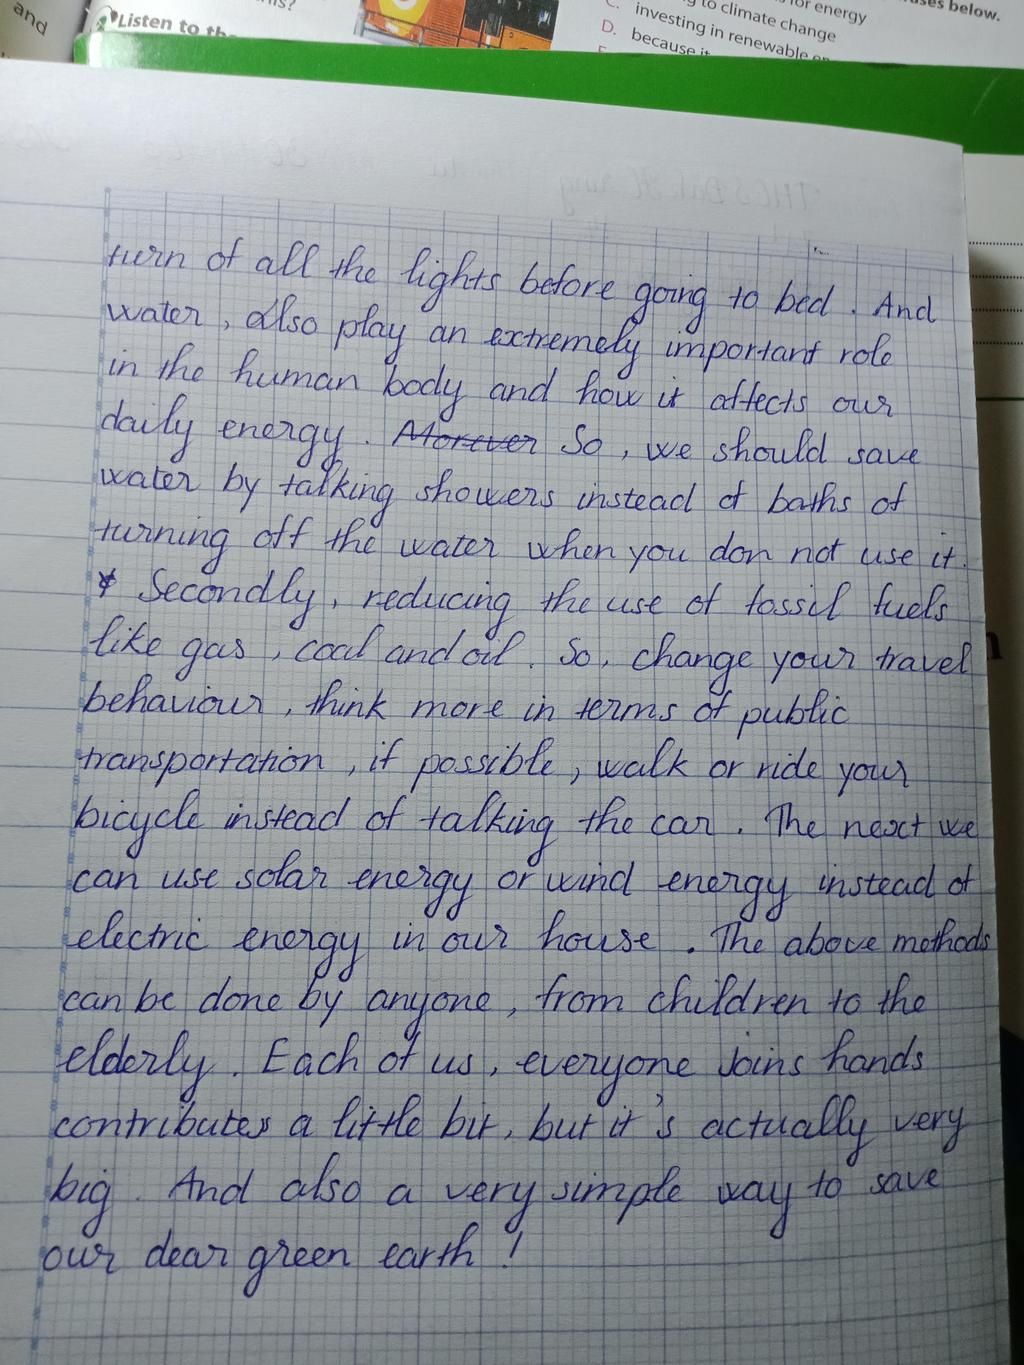 and
Listen to the
ns?
C.
D.
g to climate change
investing in renewable en
because it
s for energy
uses below.
turn of all the lights before going to bed. And
water, also play an extremely important role
in the human body and how it affects our
daily energy. Morever So, we should save
water by talking showers instead of baths of
turning off the water when you don not use it.
* Secondly, reducing the use of fossil fuels
like gas, coal and oil. So, change your travel
behaviour, think more in terms of public
transportation, if possible, walk or ride your
bicycle instead of talking the car. The next we
can use solar energy or wind energy instead of
electric energy in our house. The above methods
can be done by anyone, from children to the
elderly. Each of us, everyone joins hands
contributes a little bit, but it's actually very
big. And also a very simple way to save
our dear green earth!